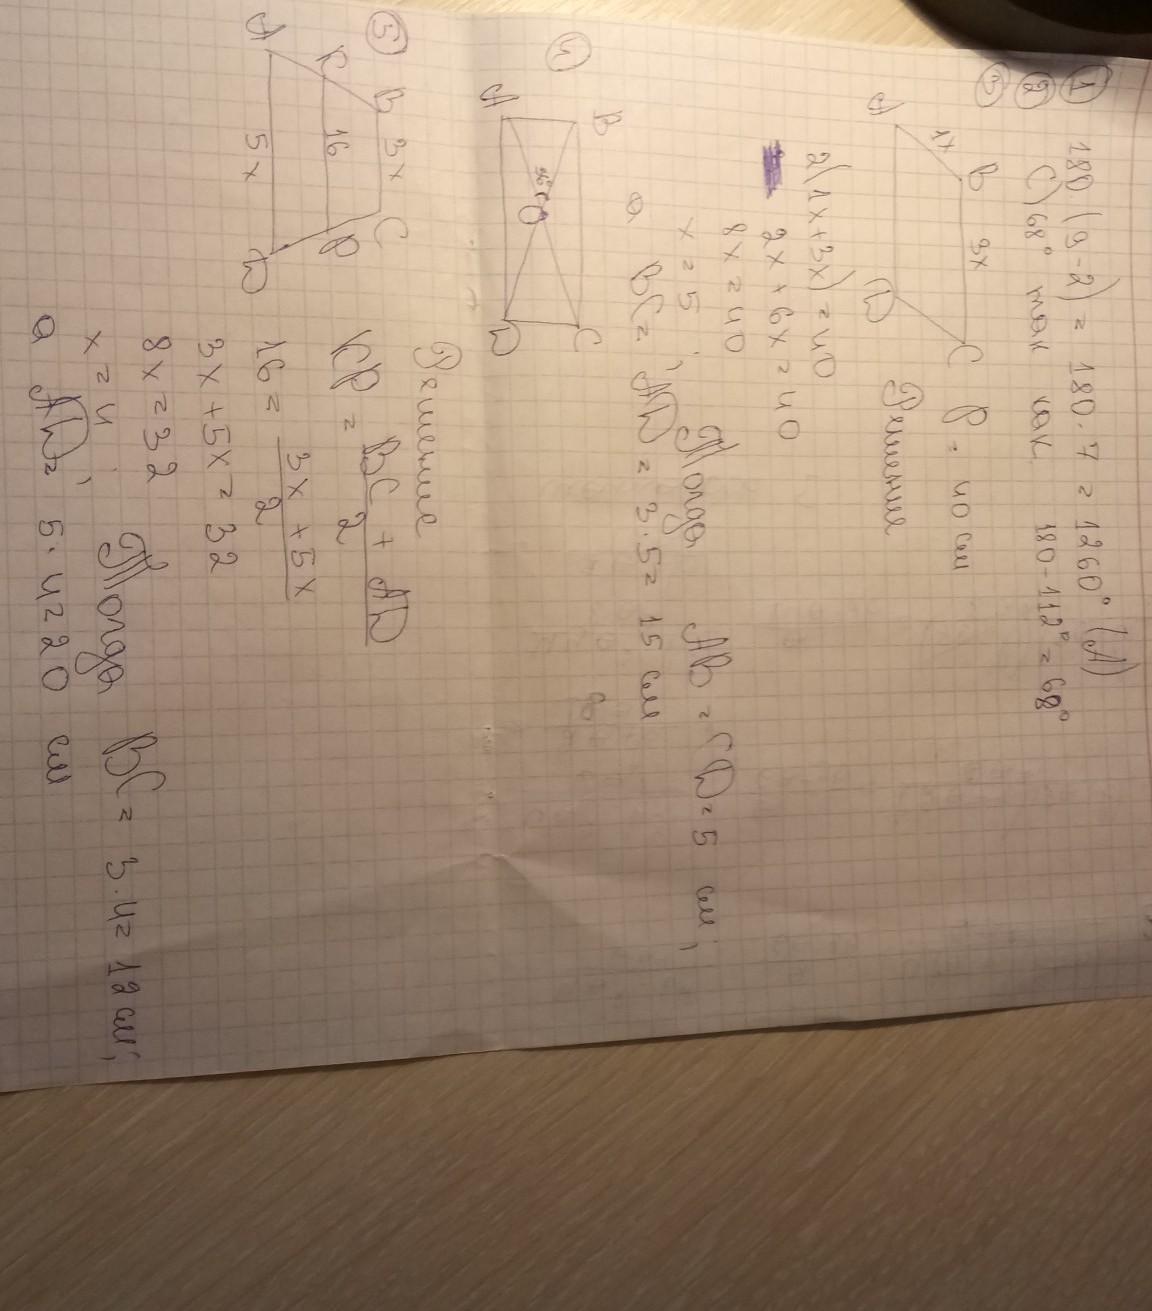 1 180 (9-2) = 180 · 7 = 1260° (А)
2 С) 68° так как 180-112° = 68°
3
A 1x B 3x C D
P = 40 см
Решение
2(1x+3x) = 40
2x + 6x = 40
8x = 40
x = 5; Тогда AB = CD = 5 см,
а BC = AD = 3·5 = 15 см
4
A B C D O
5
A K B 3x C P D 16 5x
Решение
KP = BC + AD / 2
16 = 3x + 5x / 2
3x + 5x = 32
8x = 32
x = 4; Тогда BC = 3·4 = 12 см;
а AD = 5·4 = 20 см